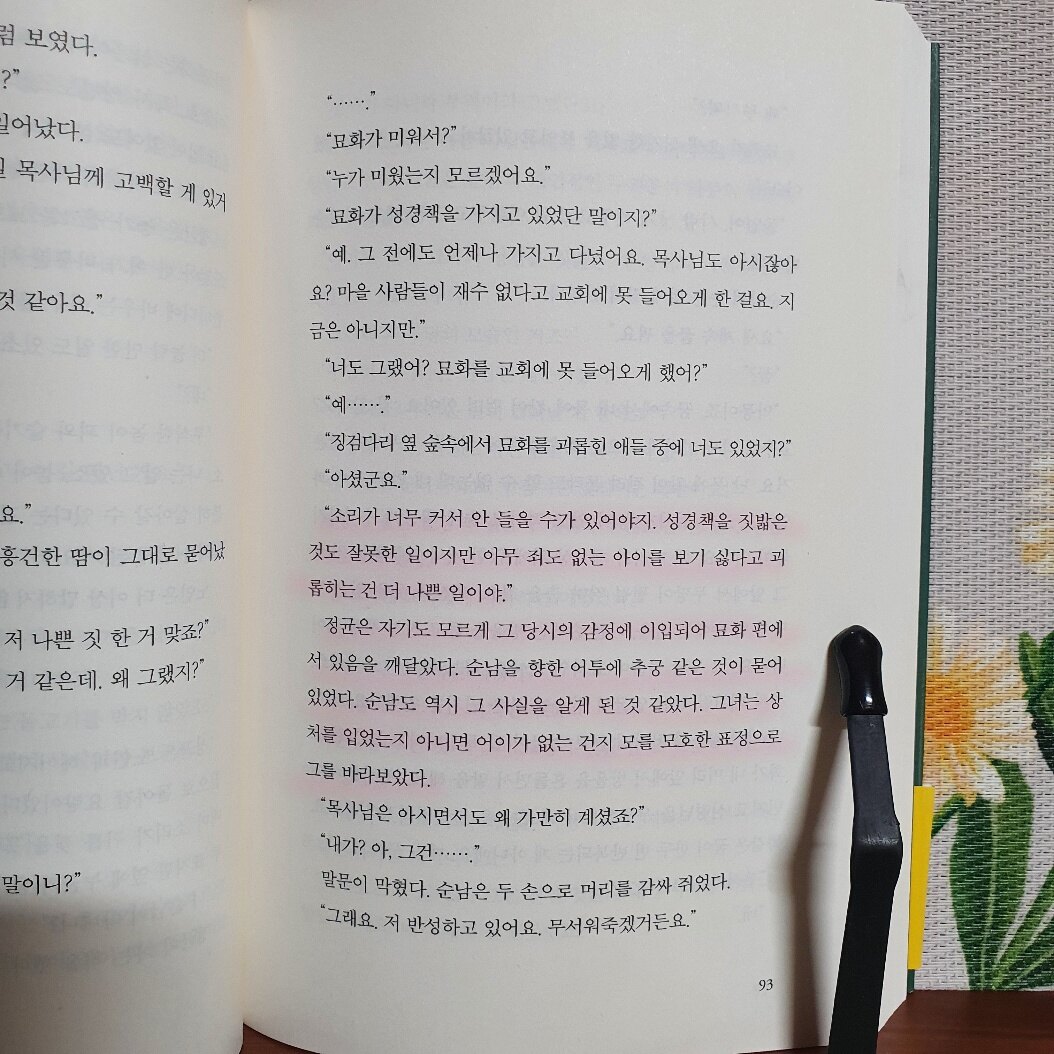 럼 보였다.
?”
일어났다.
목사님께 고백할 게 있거
것 같아요.”
요.”
흥건한 땀이 그대로 묻어났
저 나쁜 짓 한 거 맞죠?”
거 같은데. 왜 그랬지?”
말이니?”
“…….”
“묘화가 미워서?”
“누가 미웠는지 모르겠어요.”
“묘화가 성경책을 가지고 있었단 말이지?”
“예. 그 전에도 언제나 가지고 다녔어요. 목사님도 아시잖아
요? 마을 사람들이 재수 없다고 교회에 못 들어오게 한 걸요. 지
금은 아니지만.”
“너도 그랬어? 묘화를 교회에 못 들어오게 했어?”
“예…….”
“징검다리 옆 숲속에서 묘화를 괴롭힌 애들 중에 너도 있었지?”
“아셨군요.”
“소리가 너무 커서 안 들을 수가 있어야지. 성경책을 짓밟은
것도 잘못한 일이지만 아무 죄도 없는 아이를 보기 싫다고 괴
롭히는 건 더 나쁜 일이야.”
정균은 자기도 모르게 그 당시의 감정에 이입되어 묘화 편에
서 있음을 깨달았다. 순남을 향한 어투에 추궁 같은 것이 묻어
있었다. 순남도 역시 그 사실을 알게 된 것 같았다. 그녀는 상
처를 입었는지 아니면 어이가 없는 건지 모를 모호한 표정으로
그를 바라보았다.
“목사님은 아시면서도 왜 가만히 계셨죠?”
“내가? 아, 그건…….”
말문이 막혔다. 순남은 두 손으로 머리를 감싸 쥐었다.
“그래요. 저 반성하고 있어요. 무서워죽겠거든요.”
93